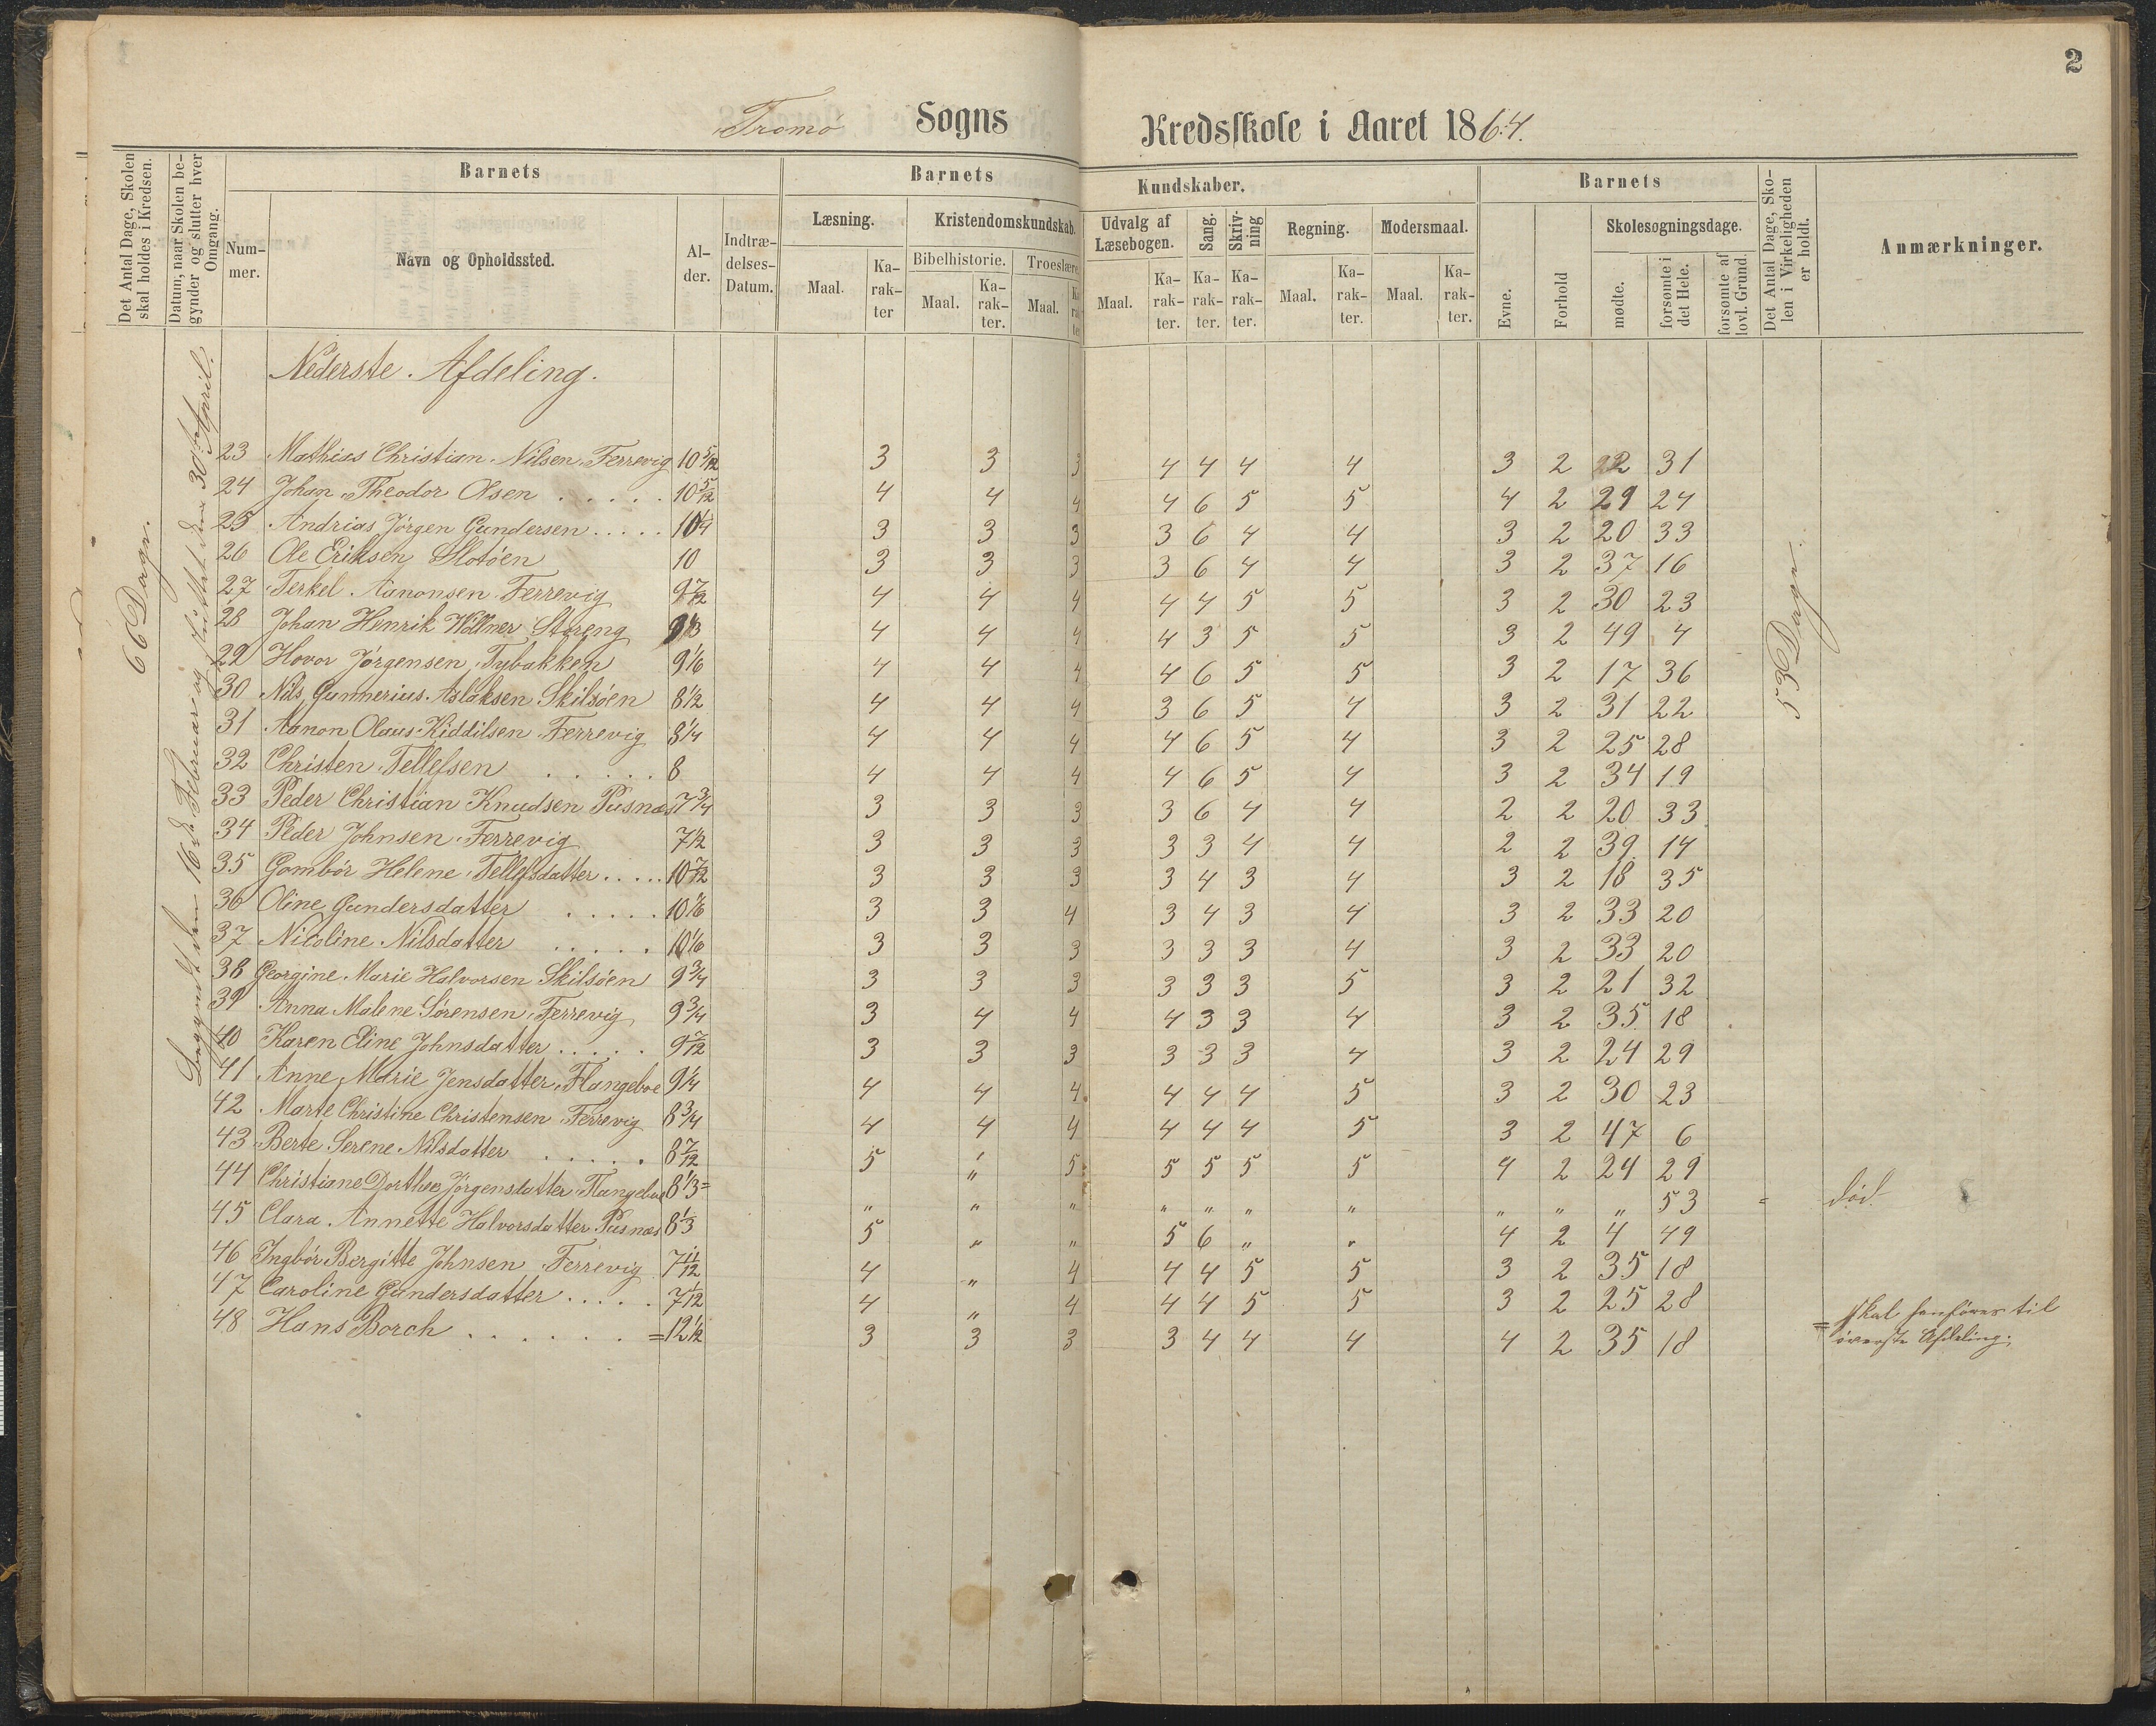 2
Tromø Sogns Kredsskole i Aaret 1864.
Det Antal Dage, Skolen skal holdes i Kredsen.
Datum, naar Skolen begynder og slutter hver Omgang.
Barnets
Nummer.
Navn og Opholdssted.
Alder.
Indtrædelses-Datum.
Barnets Kundskaber.
Læsning.
Maal.
Karakter
Kristendomskundskab.
Bibelhistorie.
Maal.
Karakter.
Troeslære
Maal.
Udvalg af Læsebogen.
Maal.
Karakter.
Sang.
Karakter.
Skrivning
Karakter.
Regning.
Maal.
Karakter.
Modersmaal.
Maal.
Karakter.
Barnets
Evne.
Forhold
Skolesøgningsdage.
mødte.
forsømte i det Hele.
forsømte af lovl. Grund.
Det Antal Dage, Skolen i Virkeligheden er holdt.
Anmærkninger.
66 Dage.
Begyndt den 16de Februar og sluttet den 30te April.
53 Dage.
Nederste Afdeling.
23 Mathias Christian Nilsen Færrevig 10 5/12 3 3 3 4 4 4 4 3 2 22 31
24 Johan Theodor Olsen . . . . . 10 5/12 4 4 4 4 6 5 5 4 2 29 24
25 Andrias Jørgen Gundersen . . . . . 10 1/4 3 3 3 3 6 4 4 3 2 20 33
26 Ole Eriksen Slotøen 10 3 3 3 3 6 4 4 3 2 37 16
27 Terkel Aanonsen Færrevig 9 7/12 4 4 4 4 4 5 5 3 2 30 23
28 Johan Henrik Wöllner Støreng 9 1/3 4 4 4 4 3 5 5 3 2 49 4
29 Hovor Jørgensen Tybakken 9 1/6 4 4 4 4 6 5 5 3 2 17 36
30 Nils Gunnerius Aslaksen Skilsøen 8 1/2 4 4 4 3 6 5 4 3 2 31 22
31 Aanon Olaus Kiddilsen Færrevig 8 1/4 4 4 4 4 6 5 4 3 2 25 28
32 Christen Tellefsen . . . . . 8 4 4 4 4 6 5 4 3 2 34 19
33 Peder Christian Knudsen Pusnæs 7 3/4 3 3 3 3 6 4 4 2 2 20 33
34 Peder Johnsen Færrevig 7 1/2 3 3 3 3 3 4 4 2 2 39 14
35 Gombør Helene Tellefsdatter . . . . . 10 7/12 3 3 3 3 4 3 4 3 2 18 35
36 Oline Gundersdatter . . . . . 10 1/6 3 3 4 3 4 3 4 3 2 33 20
37 Nicoline Nilsdatter . . . . . 10 1/6 3 3 3 3 3 3 4 3 2 33 20
38 Georgine Marie Halvorsen Skilsøen 9 3/4 3 3 3 3 3 3 5 3 2 21 32
39 Anna Malene Sørensen Færrevig 9 3/4 3 4 4 4 3 3 4 3 2 35 18
40 Karen Eline Johnsdatter . . . . . 9 7/12 3 3 3 3 3 3 4 3 2 24 29
41 Anne Marie Jensdatter Flangeboe 9 1/4 4 4 4 4 4 4 5 3 2 30 23
42 Marte Christine Christensen Færrevig 8 3/4 4 4 4 4 4 4 5 3 2 47 6
43 Berte Serene Nilsdatter . . . . . 8 7/12 5 " 5 5 5 5 5 4 2 24 29
44 Christiane Dorthea Jørgensdatter Flangeboe 8 1/3 = " " " " " " " " " " 53 = død.
45 Clara Annette Halvorsdatter Pusnæs 8 1/3 5 " " 5 6 " " 4 2 4 49
46 Ingbør Bergitte Johnsen Færrevig 7 11/12 4 " 4 4 4 5 5 3 2 35 18
47 Caroline Gundersdatter . . . . . 7 1/12 4 " 4 4 4 5 5 3 2 25 28
48 Hans Borch . . . . . . = 12 1/2 3 3 3 3 4 4 4 4 2 35 18 = skal henføres til
øverste Afdeling.